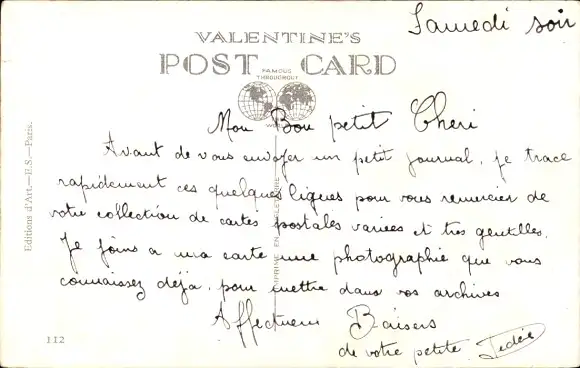 Samedi soir
VALENTINE'S
POST CARD
FAMOUS
THROUGHOUT
Mon Bon petit Cheri
Avant de vous envoyer un petit journal, je trace
rapidement ces quelques lignes pour vous remercier de
votre collection de cartes postales variées et très gentilles.
Je joins a ma carte une photographie que vous
connaissez déjà, pour mettre dans vos archives
Affectueux Baisers
de votre petite
Editions d'Art.—E.S.—Paris.
IMPRIMÉ EN
112